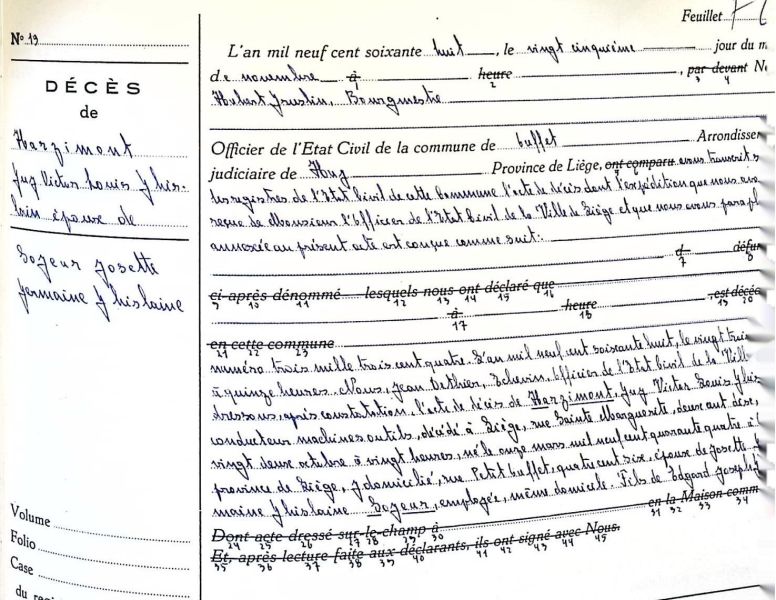 Feuillet
N° 19
DÉCÈS
de
Harzimont
Guy Victor Louis Ghis-
lain époux de
Sojeur Josette
Germaine Ghislaine
Volume
Folio
Case
L'an mil neuf cent soixante huit, le vingt cinquième jour du m
de novembre à heure, par devant N
1 2 3 4
Hubert, Bourgmestre
Officier de l'Etat Civil de la commune de Buffet Arrondisse
judiciaire de Huy Province de Liège, ont comparu avons transcrit s
5 6
les registres de l'Etat Civil de cette Commune l'acte de décès dont l'expédition que nous avo
reçue de Monsieur l'Officier de l'Etat Civil de la Ville de Liège et que nous avons paraph
annexée au présent acte est conçue comme suit:
d défun
7 8
ci-après dénommé lesquels nous ont déclaré que
9 10 11 12 13 14 15 16
à heure, est décéd
17 18 19 20
en cette commune
21 22 23
numéro trois mille trois cent quatre. L'an mil neuf cent soixante huit, le vingt trois
à quinze heures. Nous, Jean Dethier, Echevin, Officier de l'Etat Civil de la Ville
dressons, après constatation, l'acte de décès de Harzimont, Guy Victor Louis Ghis
conducteur machines outils, décédé à Liège, rue Sainte Marguerite, deux cent dix,
vingt deux octobre à vingt heures, né le onze mars mil neuf cent quarante quatre à
province de Liège, y domicilié, rue Petit Buffet, quatre cent six, époux de Josette
maine Ghislaine Sojeur, employée, même domicile. Fils de Edgard Joseph
Dont acte dressé sur-le-champ à en la Maison comm
24 25 26 27 28 29 30 31 32 33 34
Et, après lecture faite aux déclarants, ils ont signé avec Nous.
35 36 37 38 39 40 41 42 43 44 45